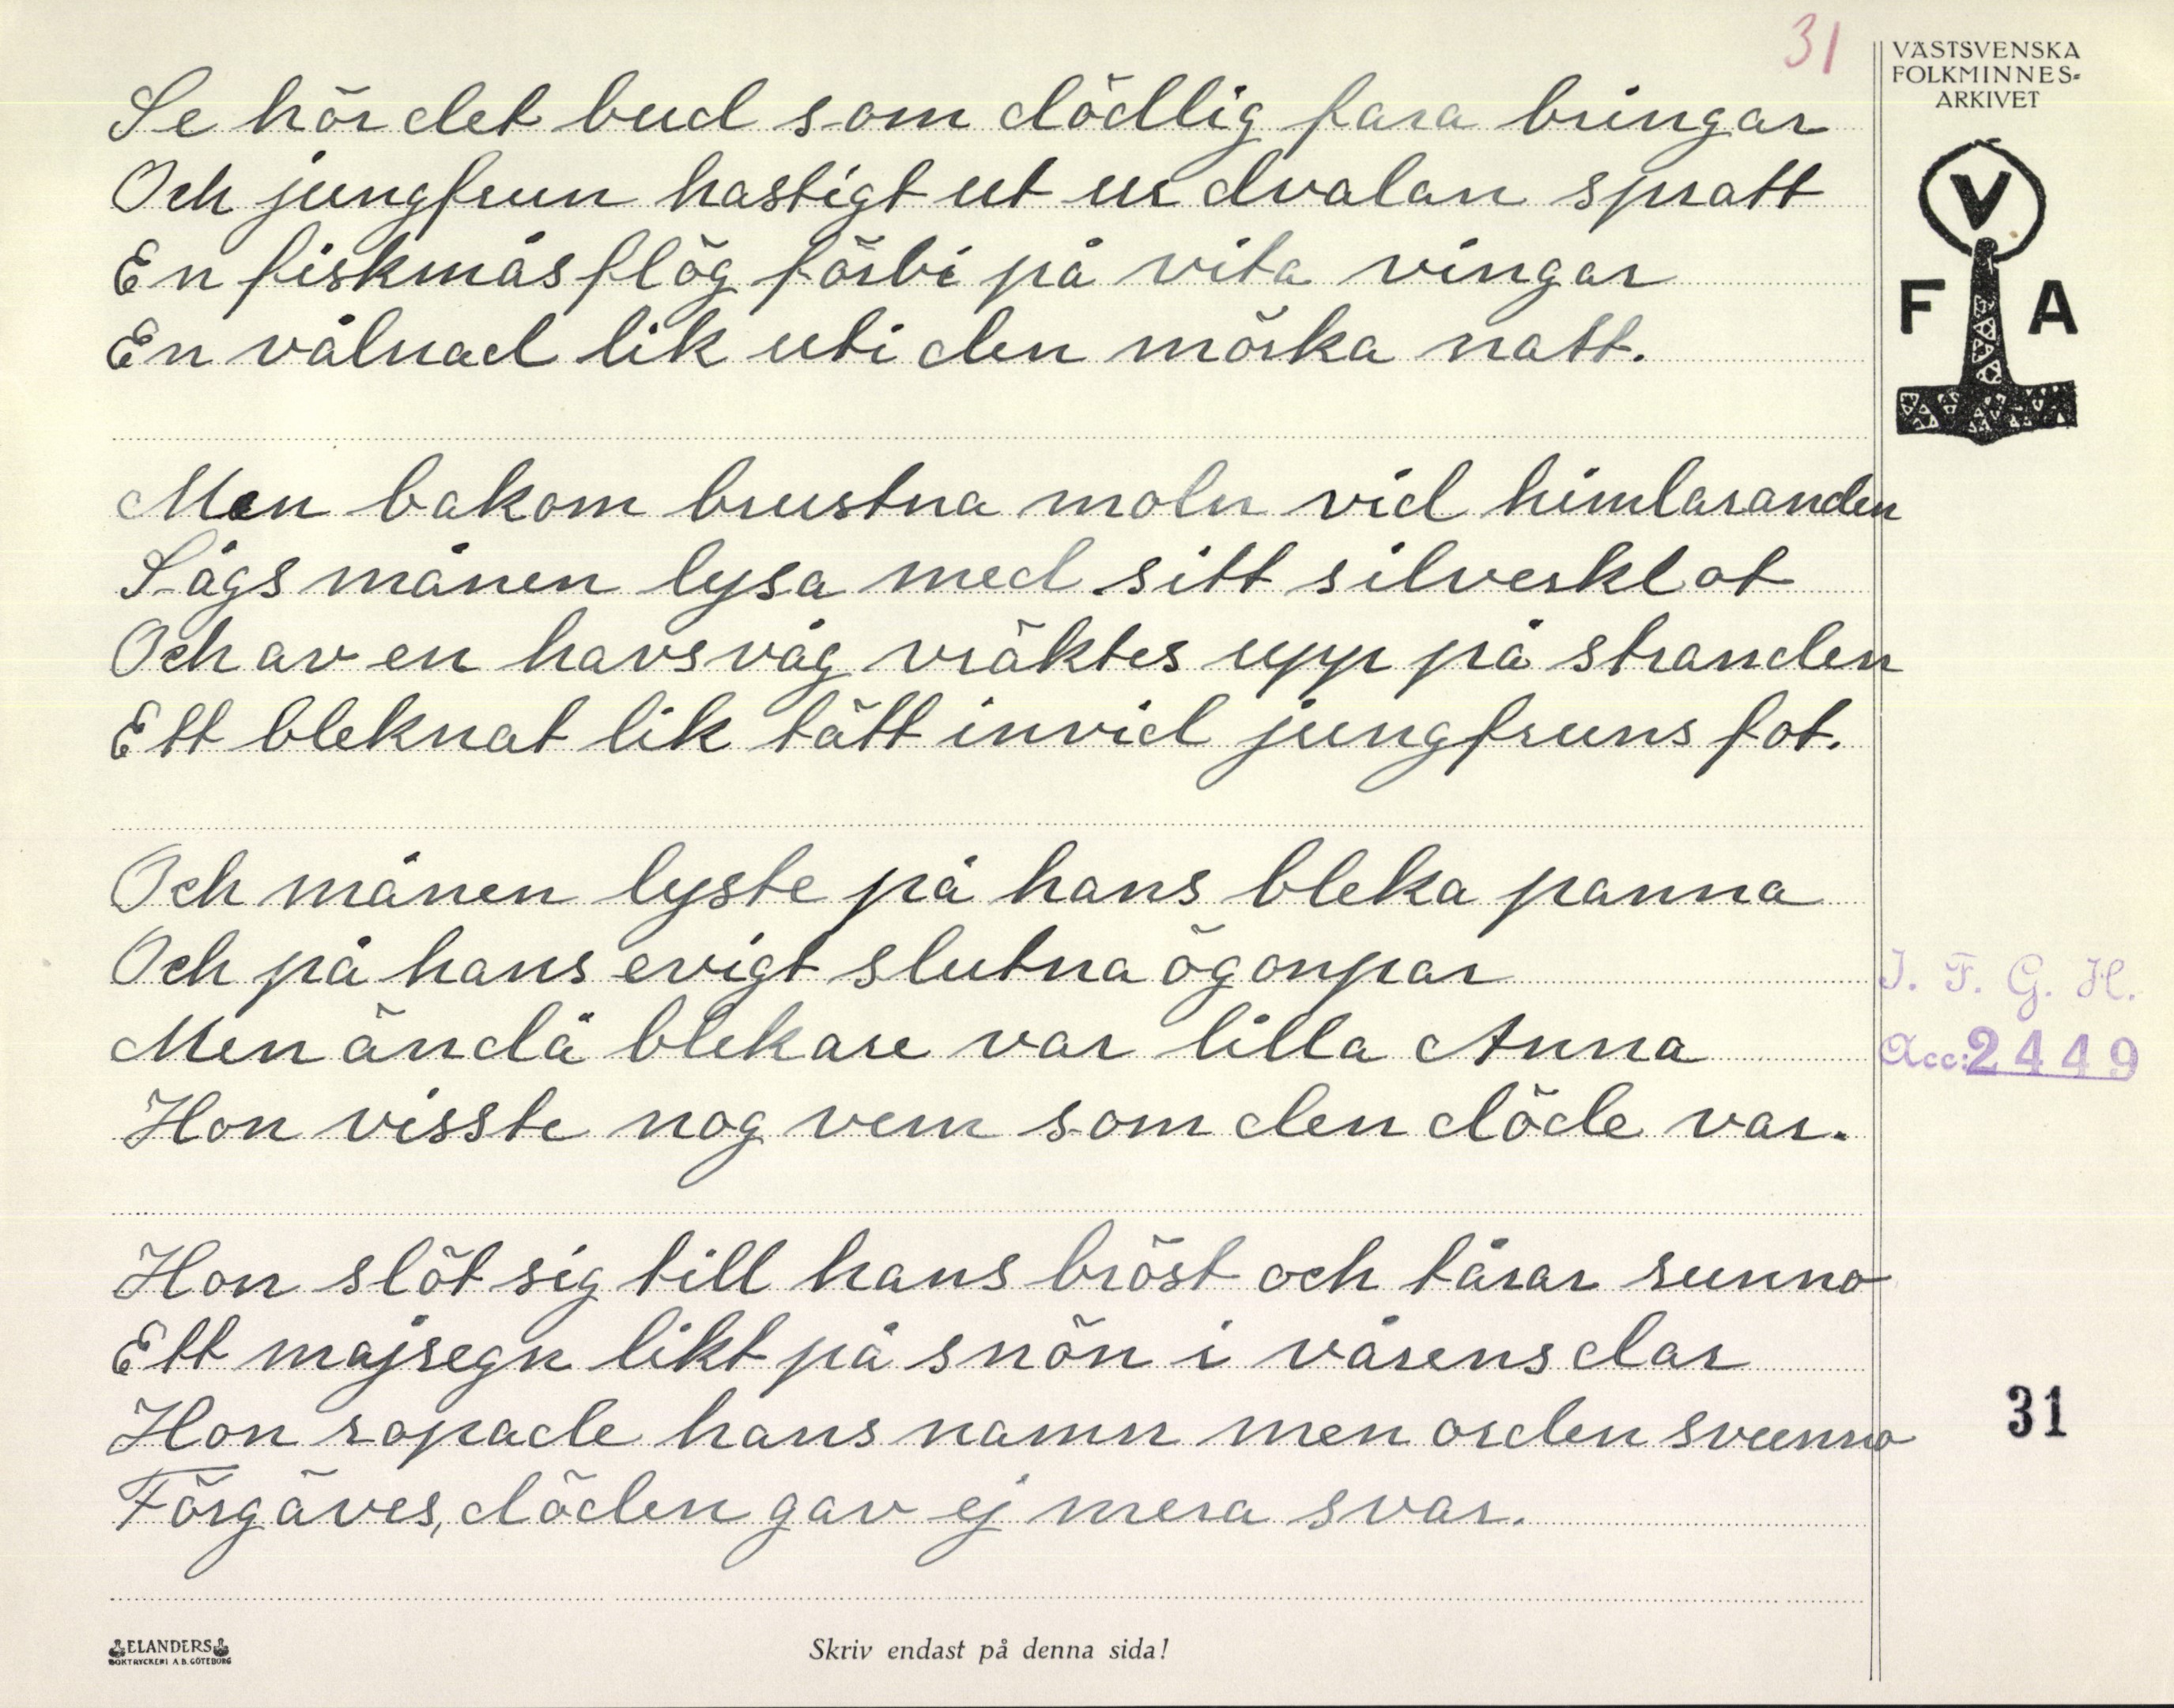 31
VÄSTSVENSKA
FOLKMINNES-
ARKIVET
V
F A
Se hör det bud som dödlig fara bringar
Och jungfrun hastigt ut ur dvalan spratt
En fiskmås flög förbi på vita vingar
En vålnad lik uti den mörka natt.
Men bakom brustna moln vid himlaranden
Sågs månen lysa med sitt silverklot
Och av en havsvåg vräktes upp på stranden
Ett bleknat lik tätt invid jungfruns fot.
Och månen lyste på hans bleka panna
Och på hans evigt slutna ögonpar
Men ändå blekare var lilla Anna
Hon visste nog vem som den döde var.
I. F. G. H.
Acc: 2449
Hon slöt sig till hans bröst och tårar runno
Ett majregn likt på snön i vårens dar
Hon ropade hans namn men orden svunno
Förgäves, döden gav ej mera svar.
31
ELANDERS
BOKTRYCKERI A.B. GÖTEBORG
Skriv endast på denna sida!